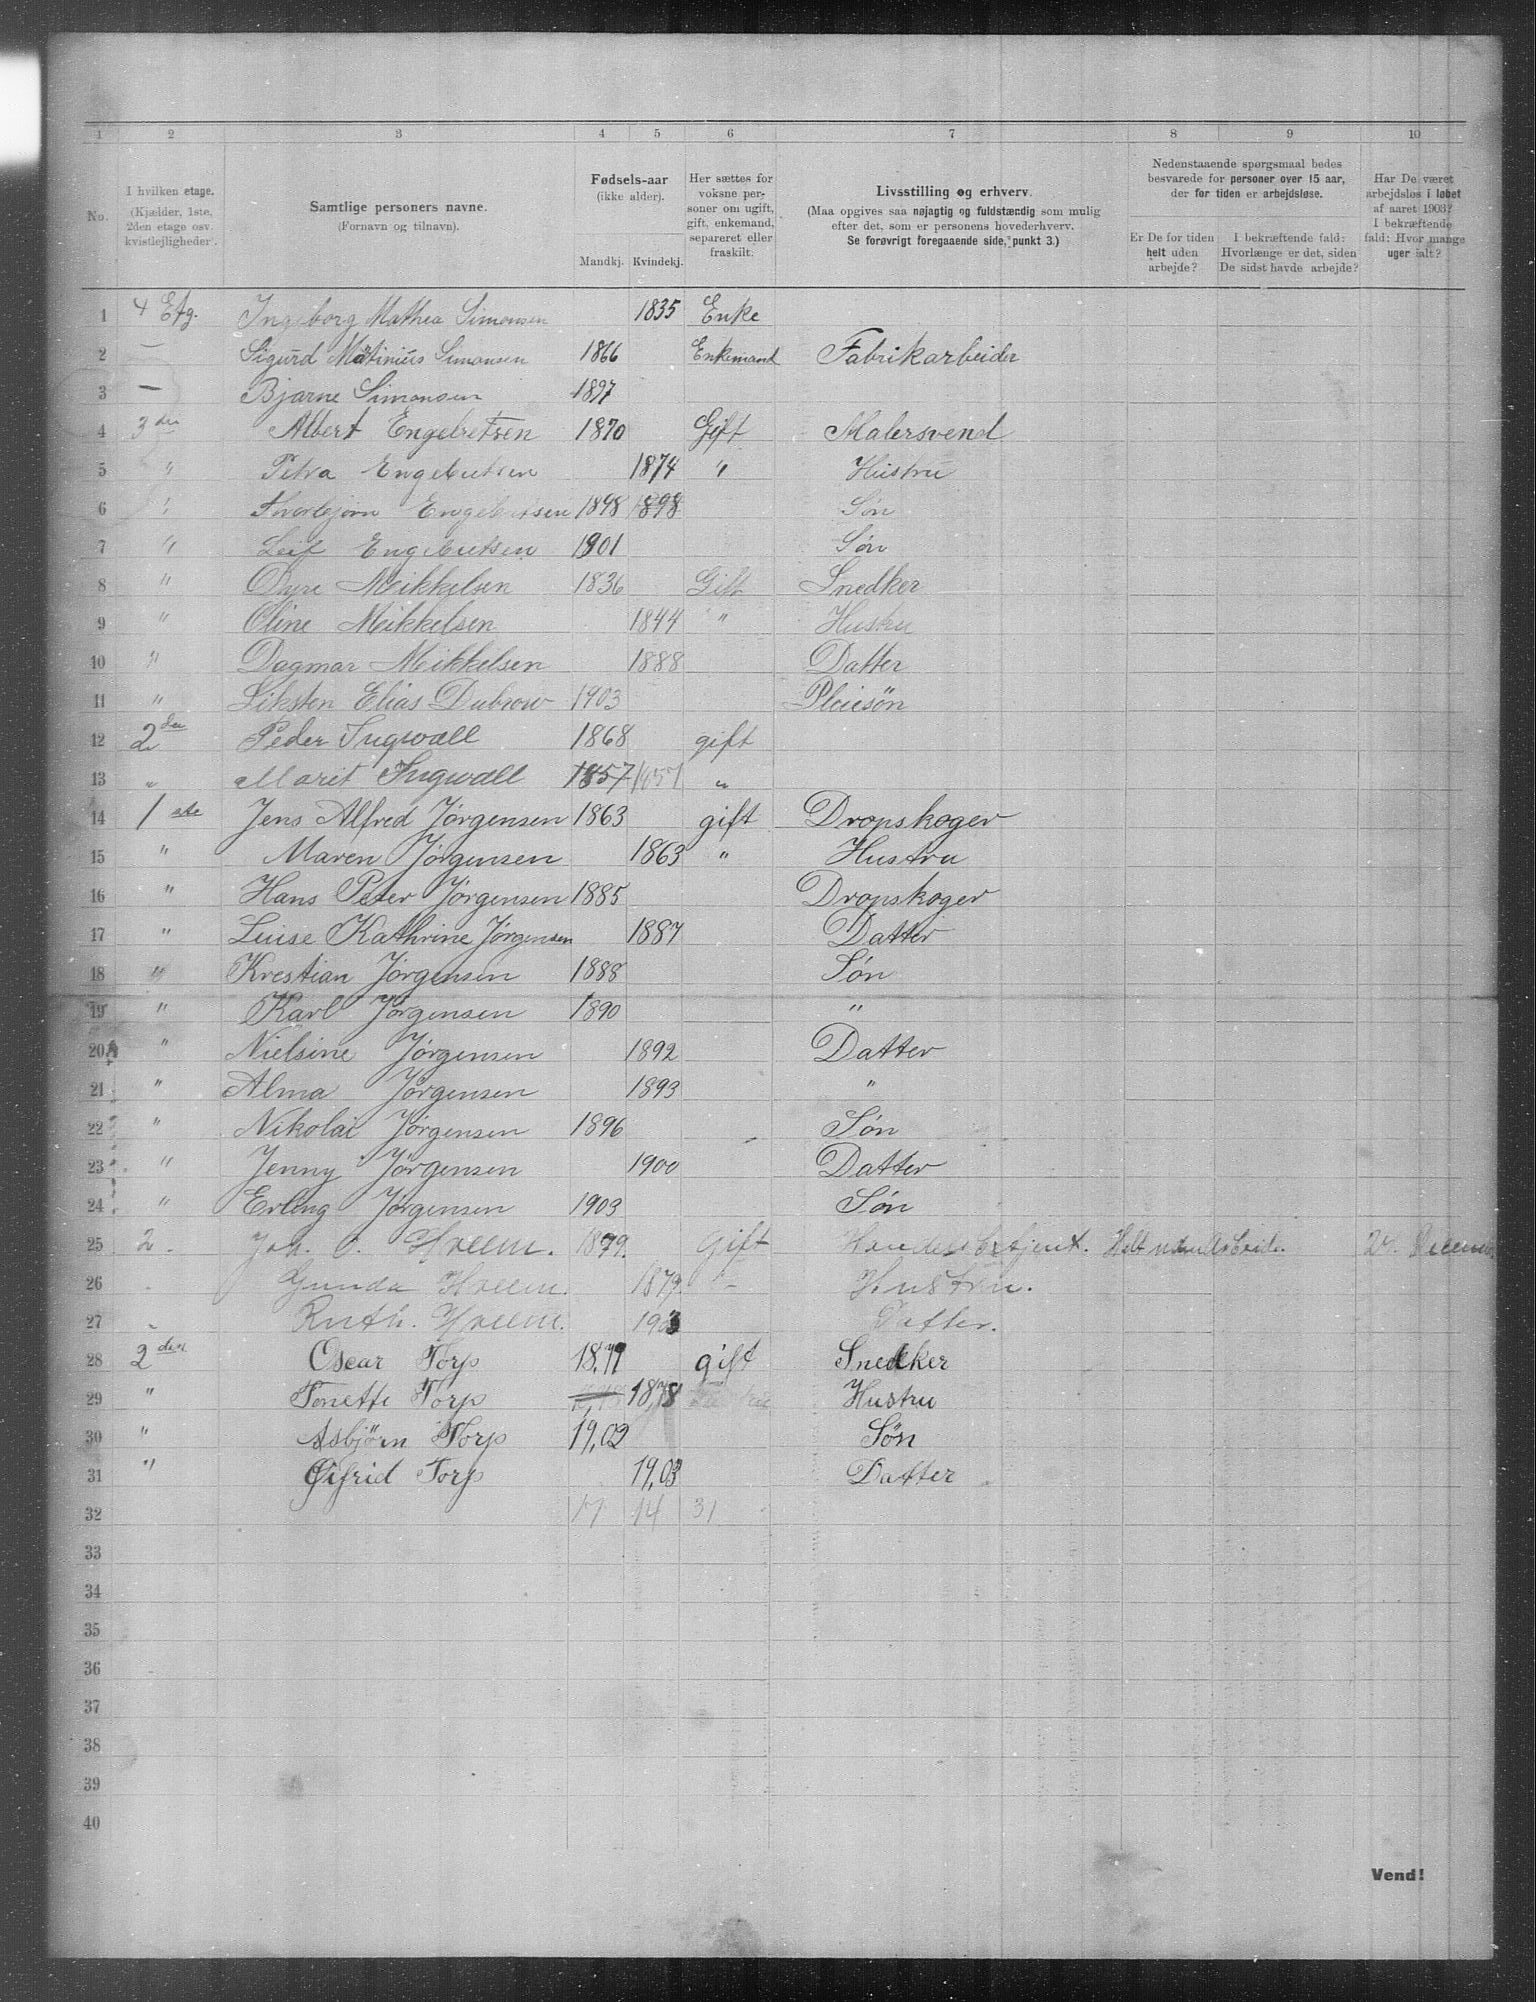 1 2 3 4 5 6 7 8 9 10
No.
I hvilken etage.
(Kjælder, 1ste,
2den etage osv.
kvistlejligheder).
Samtlige personers navne.
(Fornavn og tilnavn).
Fødsels-aar
(ikke alder).
Mandkj. Kvindekj.
Her sættes for
voksne per-
soner om ugift,
gift, enkemand,
separeret eller
fraskilt.
Livsstilling og erhverv.
(Maa opgives saa nøjagtig og fuldstændig som mulig
efter det, som er personens hovederhverv.
Se forøvrigt foregaaende side, punkt 3.)
Nedenstaaende spørgsmaal bedes
besvarede for personer over 15 aar,
der for tiden er arbejdsløse.
Er De for tiden
helt uden
arbejde?
I bekræftende fald:
Hvorlænge er det, siden
De sidst havde arbejde?
Har De været
arbejdsløs i løbet
af aaret 1903?
I bekræftende
fald: Hvor mange
uger ialt?
1 4 Etg. Ingeborg Mathea Simonsen 1835 Enke
2 — Sigurd Mätinius Simonsen 1866 Enkemand Fabrikarbeider
3 — Bjarne Simonsen 1897
4 3 die Albert Engebretsen 1870 Gift Malersvend
5 " Petra Engebretsen 1874 " Hustru
6 " Thorbjørn Engebretsen 1898 1898 Søn
7 " Leif Engebretsen 1901 Søn
8 " Mikkelsen 1836 Gift Snedker
9 " Oline Mikkelsen 1844 " Hustru
10 " Dagmar Mikkelsen 1888 Datter
11 " Elias Dubrow 1903 Pleiesön
12 2 den Peder Ingwall 1868 gift
13 " Marit Ingwall 1857 1857 "
14 1 ste Jens Alfred Jørgensen 1863 gift Dropskoger
15 " Maren Jørgensen 1863 " Hustru
16 " Hans Peter Jørgensen 1885 Dropskoger
17 " Luise Kathrine Jørgensen 1887 Datter
18 " Krestian Jørgensen 1888 Søn
19 " Karl Jørgensen 1890 "
20 " Nielsine Jørgensen 1892 Datter
21 " Alma Jørgensen 1893 "
22 " Nikolai Jørgensen 1896 Søn
23 " Jenny Jørgensen 1900 Datter
24 " Erling Jørgensen 1903 Søn
25 2. Joh. O. Hveem. 1879. Gift Handelsbetjent. Helt uden Arbeide.
26 Gunda Hveem. 1879. Hustru.
27 Ruth. Hveem. 1903 Datter.
28 2 den Oscar Torp 18,79 gift Snedker
29 " Tonette Torp 18,78 Hustru
30 " Asbjörn Torp 19,02 Søn
31 " Torp 19,03 Datter
32 17 14 31
33
34
35
36
37
38
39
40
Vend!